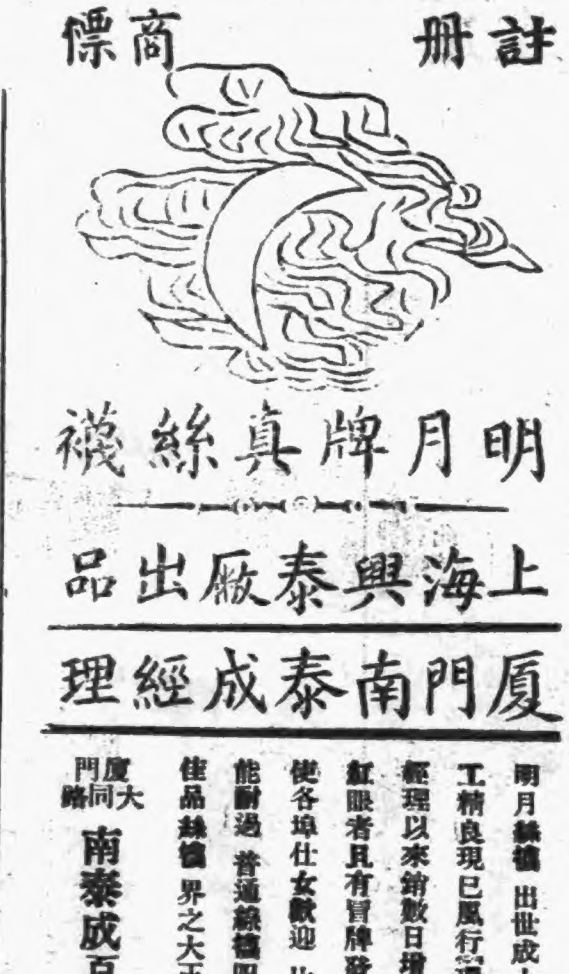 註冊 商標
明月牌真絲襪
上海興泰厰出品
厦門南泰成經理
明月絲襪 出世成
工精良現已風行
經理以來銷數日增
紅眼者且有冒牌發
使各埠仕女歡迎 比
能耐過 普通絲襪四
佳品絲襪界之大王
厦門大同路
南泰成百